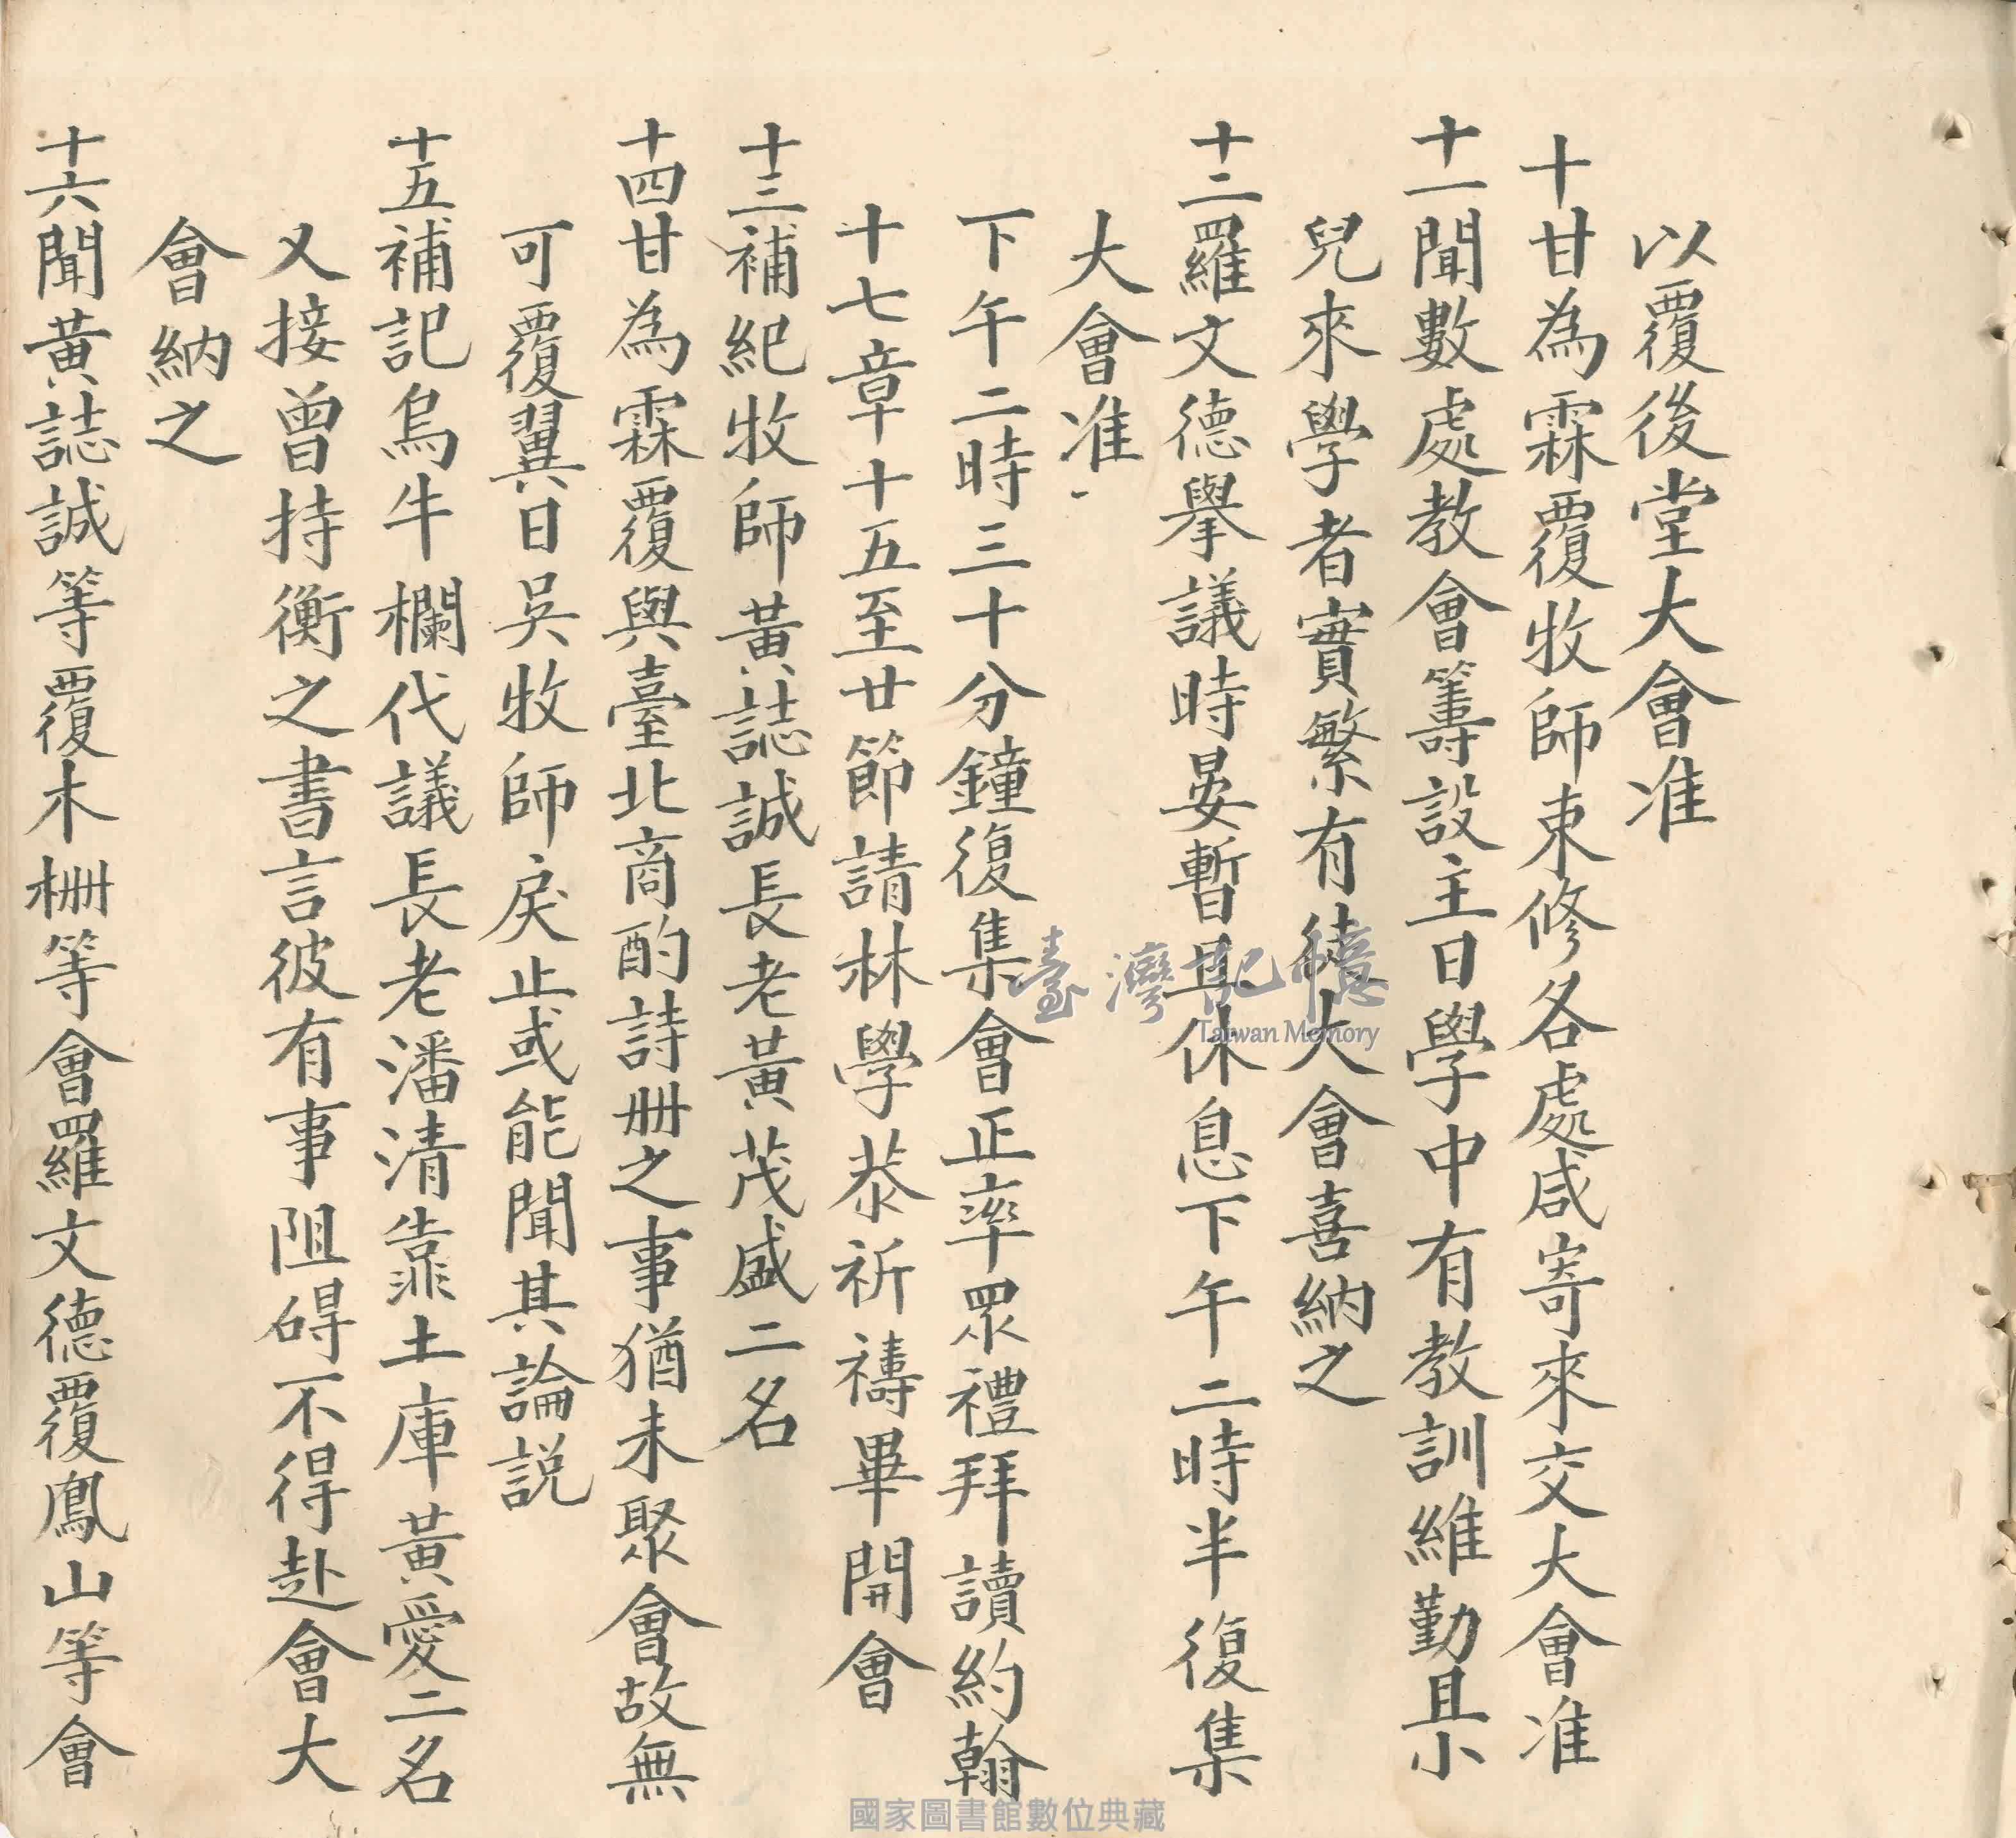 以覆後堂大會准
十甘為霖覆牧師束修各處咸寄來交大會准
十一聞數處教會籌設主日學中有教訓維勤且小
兒來學者實繁有徒大會喜納之
十二羅文德舉議時晏暫且休息下午二時半復集
大會准
下午二時三十分鐘復集會正率眾禮拜讀約翰
十七章十五至廿節請林學恭祈禱畢開會
十三補紀牧師黃誌誠長老黃茂盛二名
十四甘為霖覆與臺北商酌詩冊之事猶未聚會故無
可覆翼日吳牧師戾止或能聞其論說
十五補記烏牛欄代議長老潘清靠土庫黃愛二名
又接曾持衡之書言彼有事阻碍不得赴會大
會納之
十六聞黃誌誠等覆木柵等會羅文德覆鳳山等會
臺灣記憶
Taiwan Memory
國家圖書館數位典藏